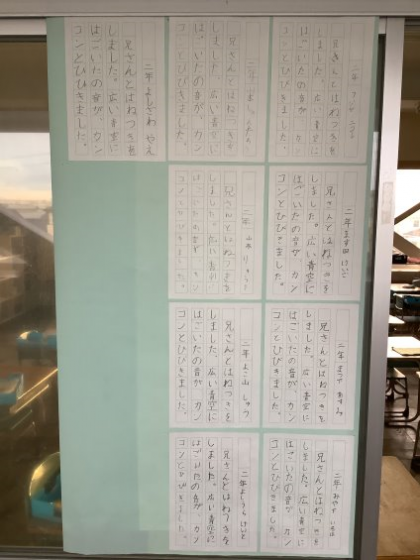 兄さんとはねつきを
しました。広い青空に
はごいたの音が、カン
コンとひびきました。
兄さんとはねつきを
しました。広い青空に
はごいたの音が、カン
コンとひびきました。
二年ますだ けいじ
兄さんとはねつきを
しました。広い青空に
はごいたの音が、カン
コンとひびきました。
二年
兄さんとはねつきを
しました。広い青空に
はごいたの音が、カン
コンとひびきました。
二年
兄さんとはねつきを
しました。広い青空に
はごいたの音が、カン
コンとひびきました。
二年
兄さんとはねつきを
しました。広い青空に
はごいたの音が、カン
コンとひびきました。
二年
兄さんとはねつきを
しました。広い青空に
はごいたの音が、カン
コンとひびきました。
二年よこ山 しゅう
兄さんとはねつきを
しました。広い青空に
はごいたの音が、カン
コンとひびきました。
二年
兄さんとはねつきを
しました。広い青空に
はごいたの音が、カン
コンとひびきました。
二年よしざわ やえ